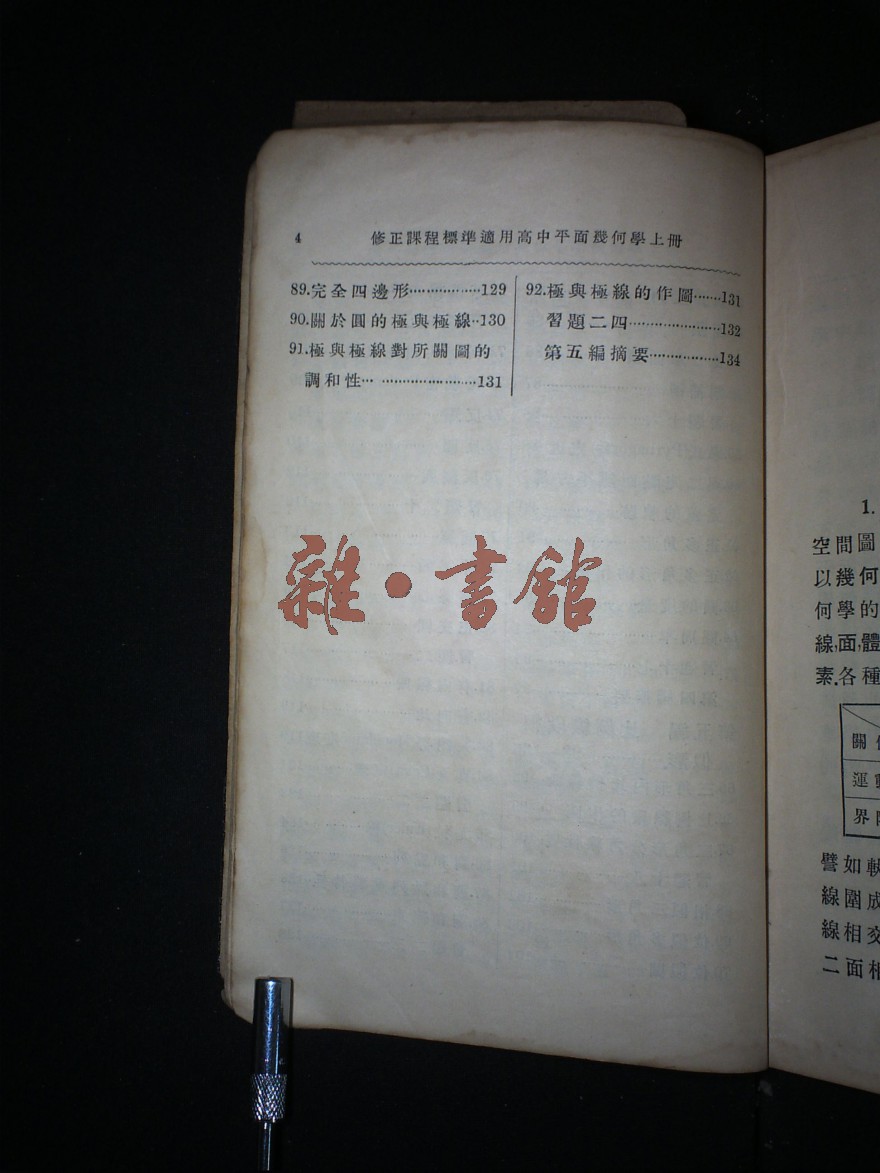 4 修正課程標準適用高中平面幾何學上冊
89.完全四邊形………………129
90.關於圓的極與極線··130
91.極與極線對所關圖的
調和性… ……………………131
92.極與極線的作圖……131
習題二四…………………132
第五編摘要………………134
雜·書館
1.
空間圖
以幾何
何學的
線,面,體
素.各種
關
運
界
譬如
線圍成
線相交
二面相